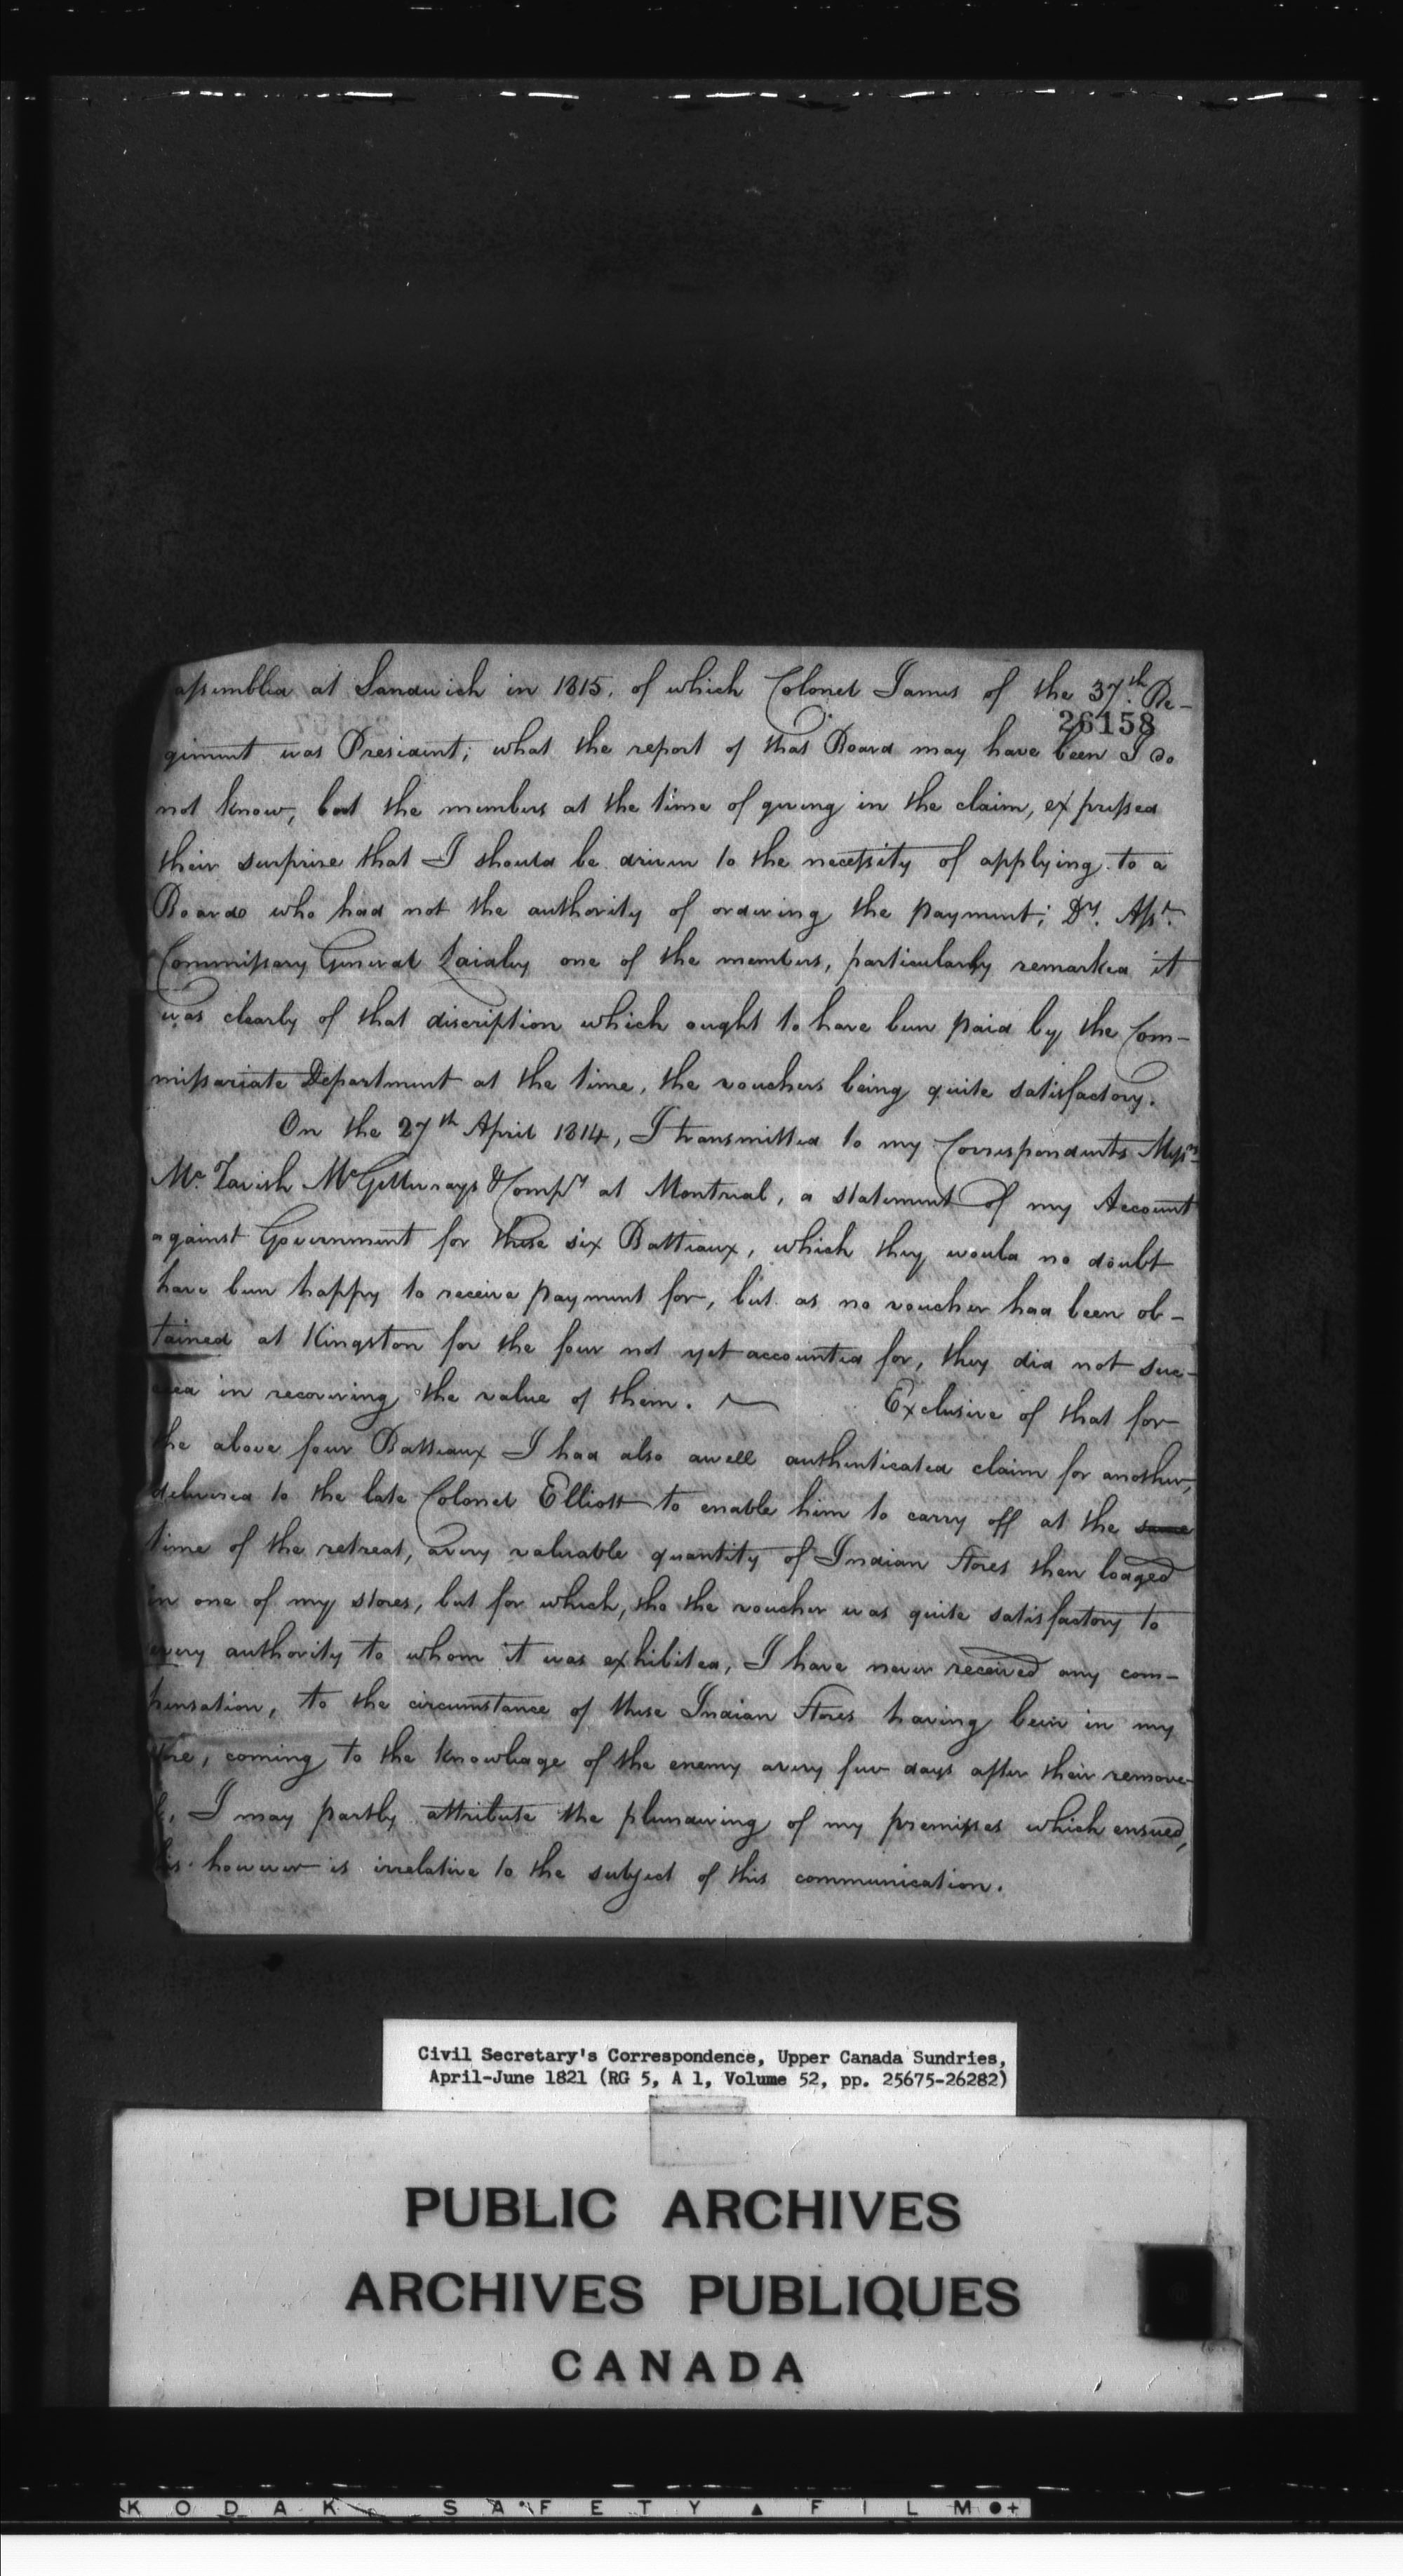 assembled at Sandwich in 1815. of which Colonel James of the 37th. Re-
26158
giment was President; what the report of that Board may have been I do
not know, but the members at the time of giving in the claim, expressed
their surprise that I should be driven to the necessity of applying to a
Board who had not the authority of ordering the payment; Dy. Asst.
Commissary General Laidley one of the members, particularly remarked it
was clearly of that discription which ought to have been paid by the Com-
missariate Department at the time, the vouchers being quite satisfactory.
On the 27th April 1814, I transmitted to my Correspondents Messrs
Mc. Tavish McGillivrays & Compy at Montreal, a statement of my Account
against Government for these six Batteaux, which they would no doubt
have been happy to receive payment for, but as no voucher had been ob-
tained at Kingston for the four not yet accounted for, they did not suc-
ceed in recovering the value of them. Exclusive of that for
the above four Batteaux I had also a well authenticated claim for another,
delivered to the late Colonel Elliott to enable him to carry off at the same
time of the retreat, a very valuable quantity of Indian Stores then lodged
in one of my stores, but for which, tho the voucher was quite satisfactory to
every authority to whom it was exhibited, I have never received any com-
pensation, to the circumstance of these Indian Stores having been in my
store, coming to the knowledge of the enemy a very few days after their remove-
al, I may partly attribute the plundering of my premisses which ensued,
this however is irrelative to the subject of this communication.
Civil Secretary's Correspondence, Upper Canada Sundries,
April-June 1821 (RG 5, A 1, Volume 52, pp. 25675-26282)
PUBLIC ARCHIVES
ARCHIVES PUBLIQUES
CANADA
KODAK SAFETY FILM